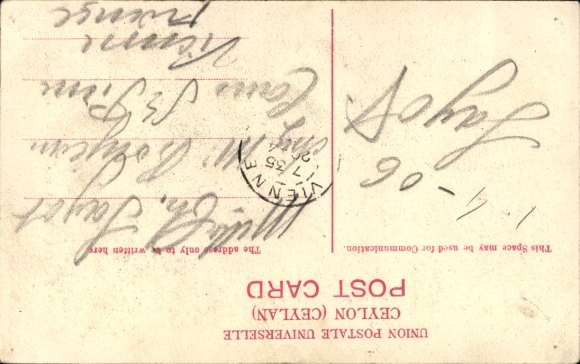 UNION POSTALE UNIVERSELLE
CEYLON (CEYLAN)
POST CARD
This Space may be used for Communication.
The address only to be written here
4 - 06
Sayot
Ch. Sayot
chez M.
Cours
St Pierre
Vienne
VIENNE
17 35